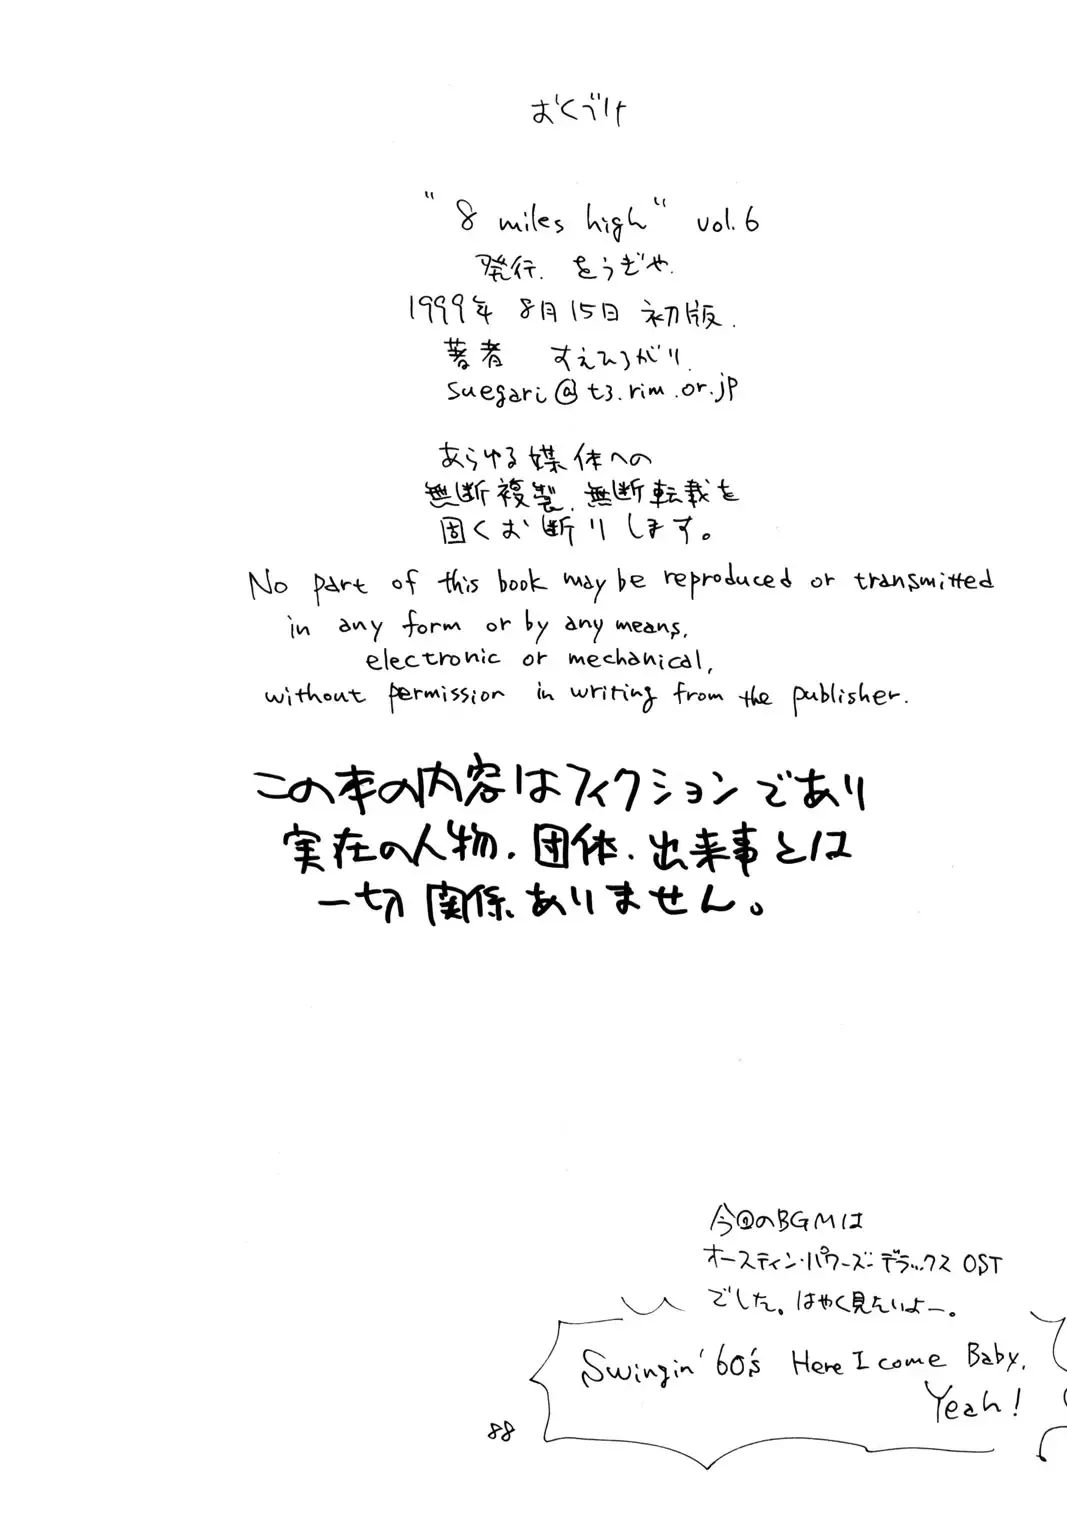 おくづけ
"8 miles high" vol.6
発行. をうぎや.
1999年 8月15日 初版.
著者 すえひろがり.
suegari@t3.rim.or.jp
あらゆる媒体への
無断複製.無断転載を
固くお断りします。
No part of this book may be reproduced or transmitted
in any form or by any means,
electronic or mechanical,
without permission in writing from the publisher.
この本の内容はフィクションであり
実在の人物.団体.出来事とは
一切関係ありません。
今回のBGMは
オースティン・パワーズ:デラックス OST
でした。はやく見たいよー。
Swingin' 60's Here I come Baby.
Yeah!
88